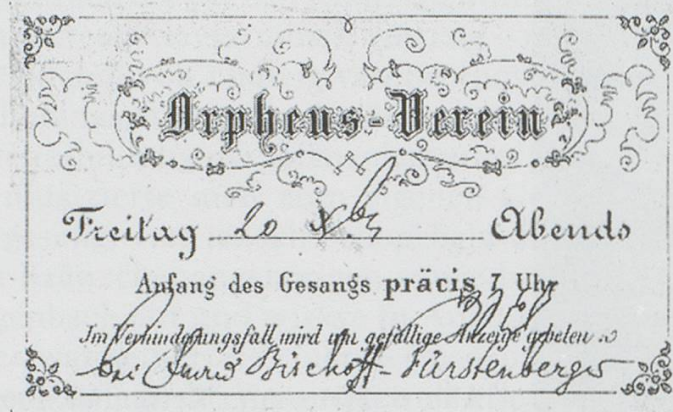 Orpheus-Verein
Freitag 20 Xbr Abends
Anfang des Gesangs präcis 7 Uhr
Im Verhinderungsfall wird um gefällige Anzeige gebeten
bei Bischoff-Fürstenberger